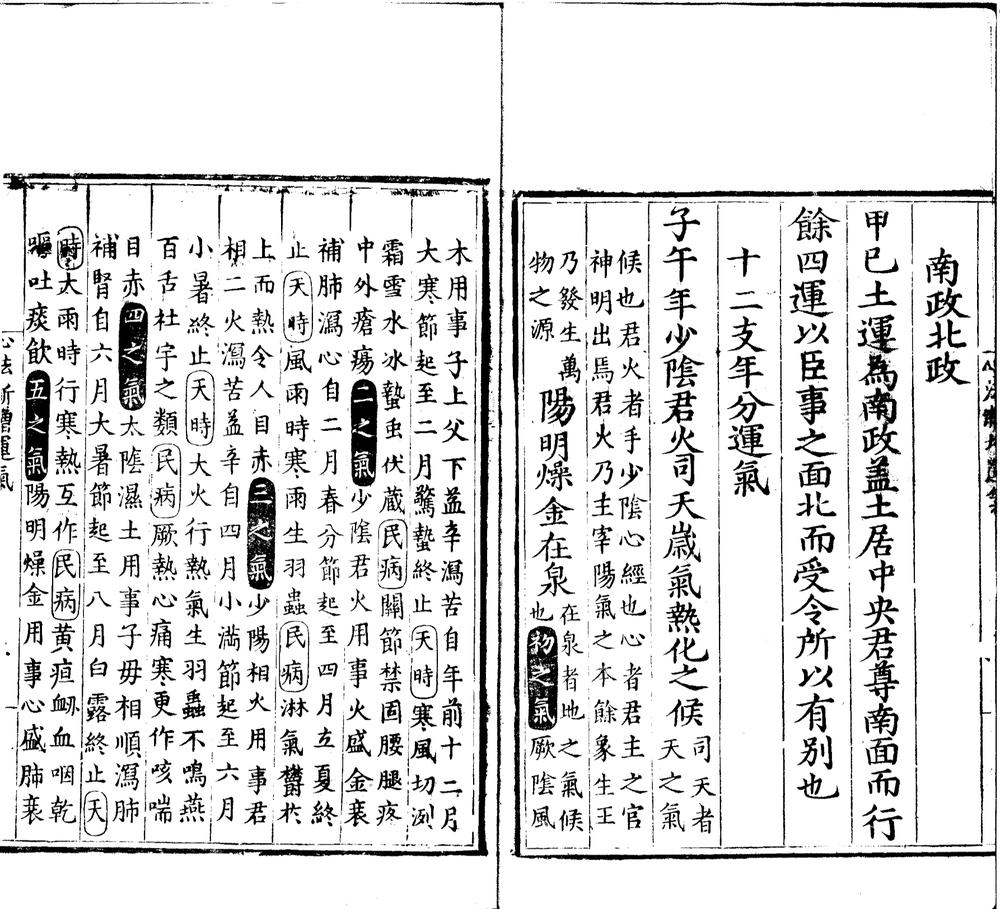 南政北政
甲巳土運為南政盖土居中央君尊南面而行
餘四運以臣事之面北而受令所以有别也
十二支年分運氣
子午年少陰君火司天歲氣熱化之候
司天者
天之氣
候也君火者手少陰心經也心者君主之官
神明出焉君火乃主宰陽氣之本餘象生王
乃發生萬
物之源
陽明燥金在泉
在泉者地之氣候
也
初之氣
厥陰風
木用事子上父下益辛瀉苦自年前十二月
大寒節起至二月驚蟄終止天時寒風切冽
霜雪水冰蟄虫伏蔵民病關節禁固腰腿疼
中外瘡瘍二之氣少陰君火用事火盛金衰
補肺瀉心自二月春分節起至四月立夏終
止天時風雨時寒雨生羽蟲民病淋氣欝於
上而熱令人目赤三之氣少陽相火用事君
相二火瀉苦益辛自四月小滿節起至六月
小暑終止天時大火行熱氣生羽蟲不鳴燕
百舌杜宇之類民病厥熱心痛寒更作咳喘
目赤四之氣太陰濕土用事子母相順瀉肺
補腎自六月大暑節起至八月白露終止天
時大雨時行寒熱互作民病黄疸衂血咽乾
嘔吐痰飲五之氣陽明燥金用事心盛肺衰
心法新增運氣